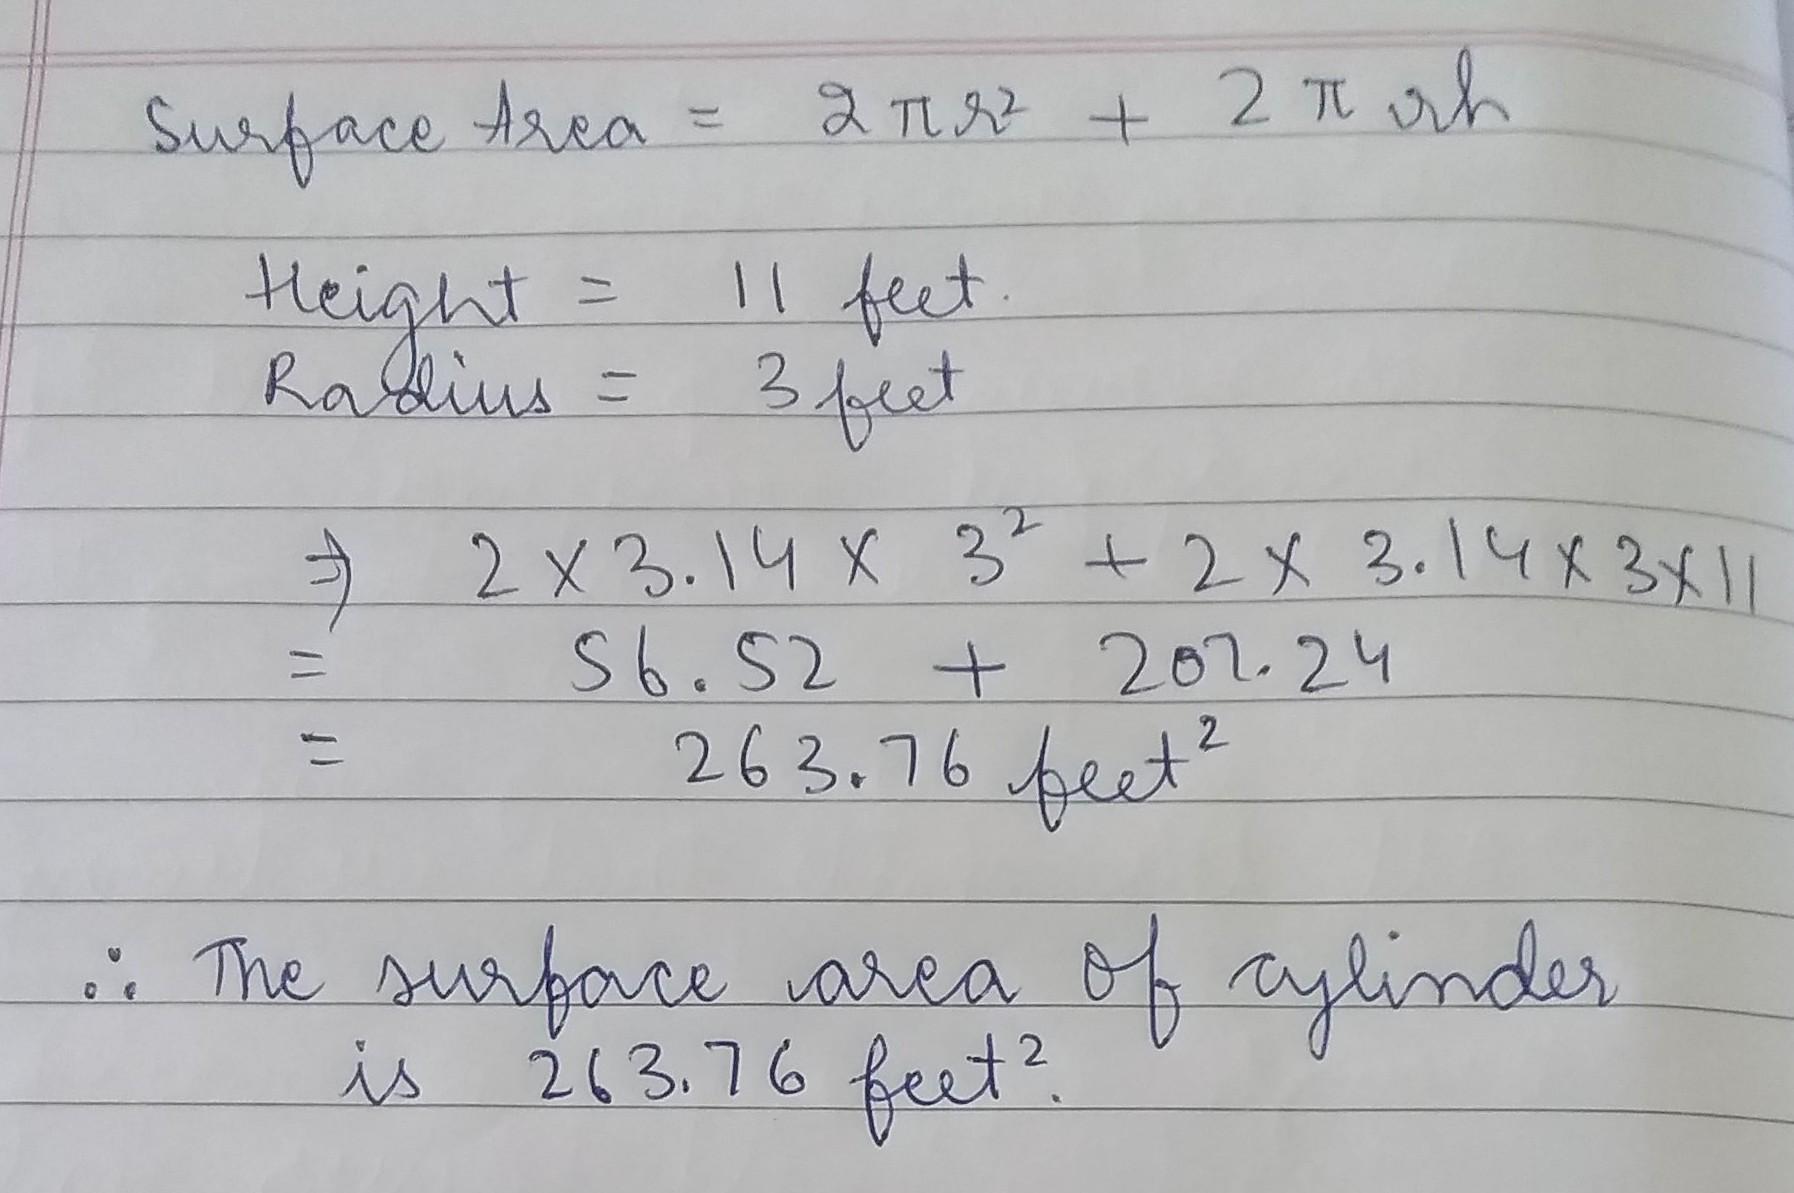 Surface Area = 2πr² + 2πrh
Height = 11 feet.
Radius = 3 feet
⇒ 2 x 3.14 x 3² + 2 x 3.14 x 3 x 11
= 56.52 + 207.24
= 263.76 feet²
∴ The surface area of cylinder
is 263.76 feet².